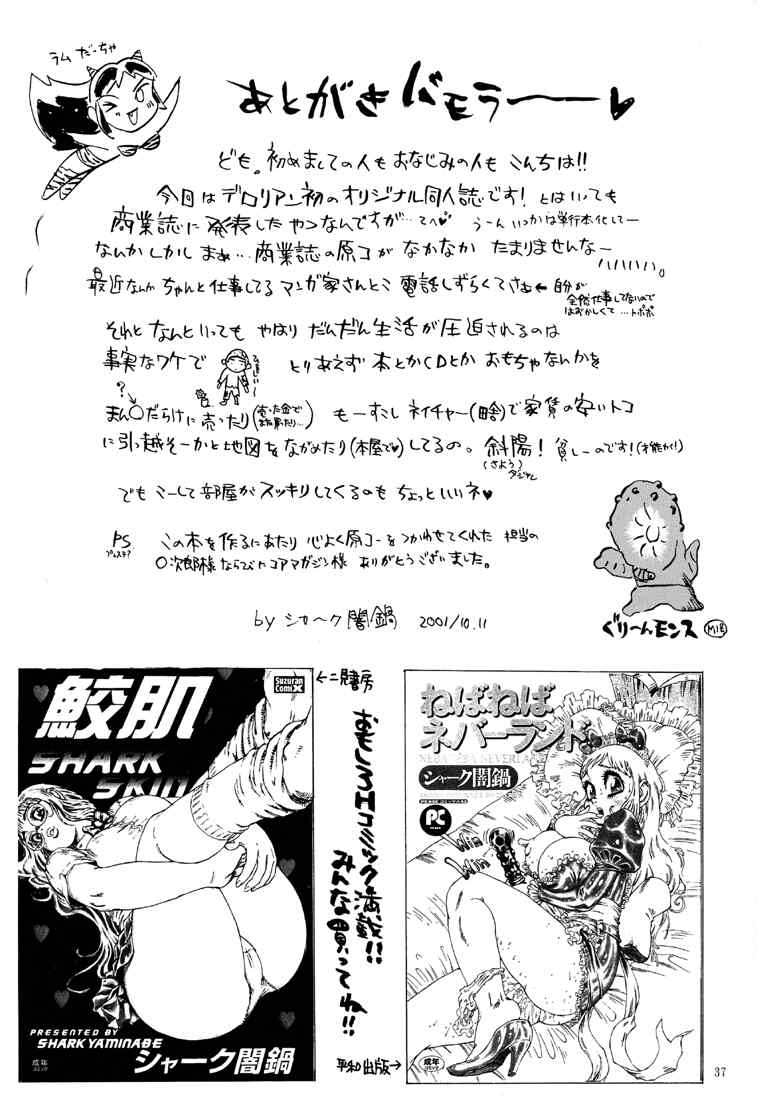 ラムだっちゃ
あとがきバモラーーー♥
ども。初めましての人もおなじみの人も こんちは!!
今回はデロリアン初のオリジナル同人誌です! とはいっても
商業誌に発表したやつなんですが…てへ♥ うーん いつかは単行本化してー
なんか しかし まぁ…商業誌の原コが なかなか たまりませんなー
ハハハハハハ。
最近なんか ちゃんと仕事してる マンガ家さんとこ 電話しずらくてさぁ ← 自分が
全然仕事してないので
はずかしくて…トホホ
それと なんといっても やはり だんだん生活が圧迫されるのは
事実なワケで とりあえず 本とかCDとか おもちゃなんかを
?
まん〇だらけに売ったり(売った金で
また買ったり…) もーすこし ネイチャー(暗)で家賃の安いトコ
に引っ越そーかと地図をながめたり(本屋で♥)してるの。 斜陽! 貧しーのです!(才能が!)
(さよう)
でも こーして部屋がスッキリしてくるのも ちょっといいネ♥
PS
プレステ?
この本を作るにあたり 心よく原コーをつかわせてくれた 担当の
〇次郎様ならびにコアマガジン様 ありがとうございました。
by シャーク闇鍋 2001/10.11
ぐりーんモンス
M1号
鮫肌
SHARK
SKIN
Suzuran
ComiX
←二見書房
PRESENTED BY
SHARK YAMINABE
成年
コミック
シャーク闇鍋
おもしろHコミック満載!!
みんな買ってね!!
平和出版→
ねばねば
ネバーランド
NEBA NEBA NEVERLAND
シャーク闇鍋
PC
Win
Win
成年
コミック
37